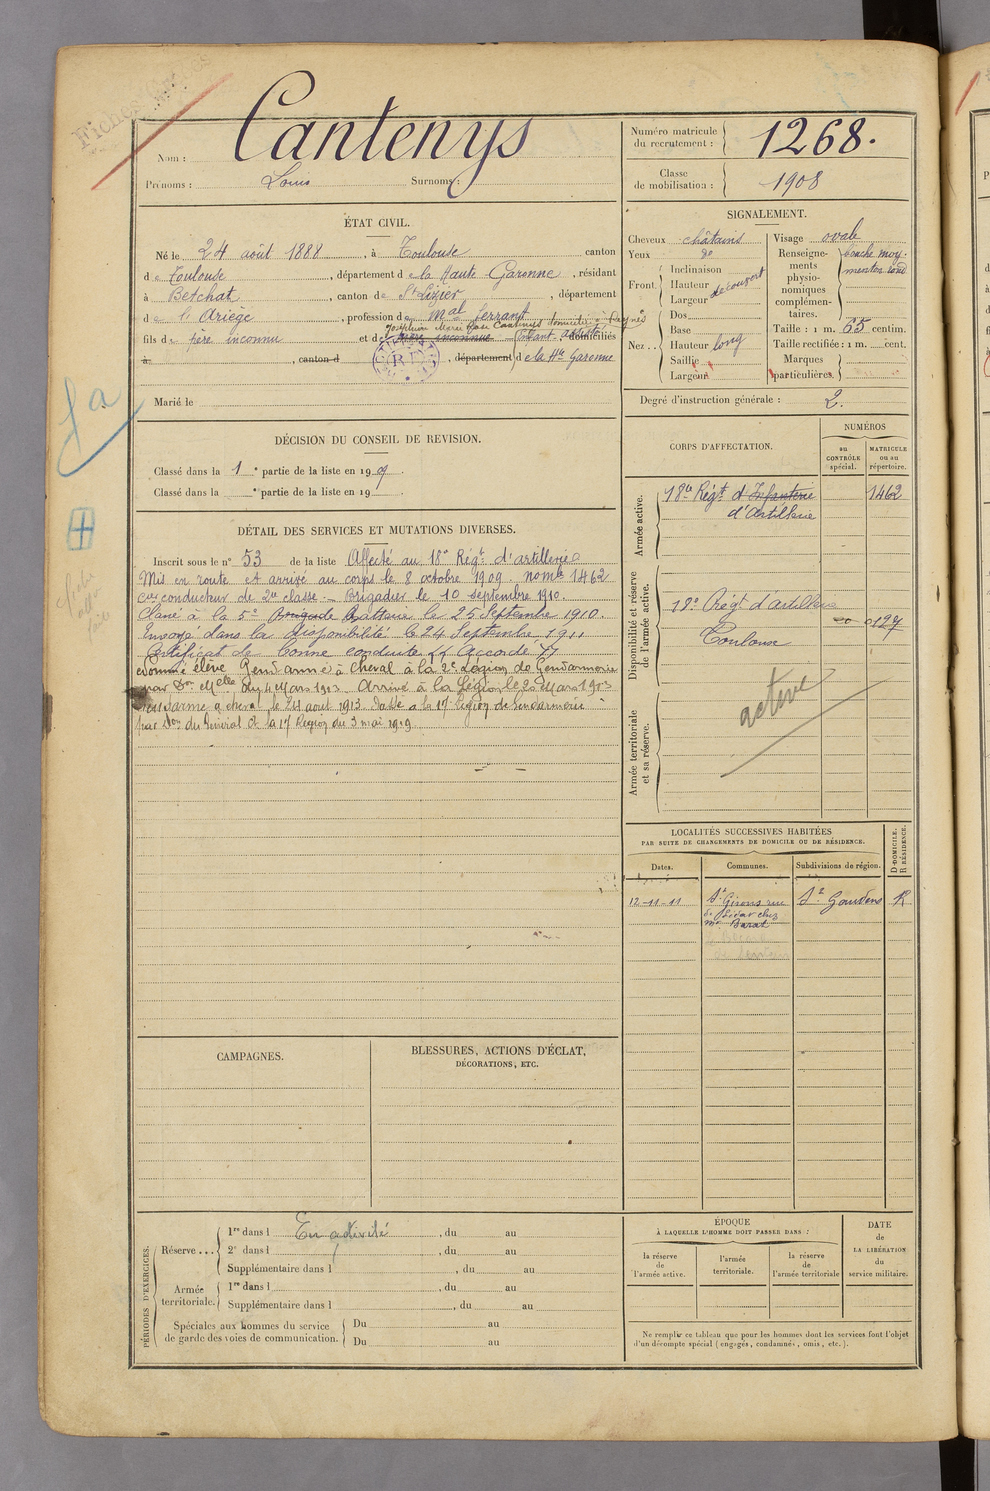 Fiches
Nom : Cantenys
Prénoms : Louis Surnoms :
Numéro matricule du recrutement : 1268.
Classe de mobilisation : 1908
ÉTAT CIVIL.
Né le 24 août 1888, à Toulouse canton
de Toulouse, département de la Haute Garonne, résidant
à Betchat, canton de St Lizier, département
de l'Ariège, profession de Mal Ferrant
Joséphine Marie Rose Cantenys domiciliée à
fils de père inconnu et de mère inconnue domiciliés
à , canton d , département de la Hte Garonne
Marié le
SIGNALEMENT.
Cheveux châtains
Yeux do
Front. Inclinaison
Hauteur
Largeur découvert
Nez .. Dos
Base
Hauteur long
Saillie
Largeur
Visage ovale
Renseignements physionomiques complémentaires. bouche moy. menton rond
Taille : 1 m. 65 centim.
Taille rectifiée : 1 m. cent.
Marques particulières.
Degré d'instruction générale : 2.
DÉCISION DU CONSEIL DE REVISION.
Classé dans la 1e partie de la liste en 1909.
Classé dans la e partie de la liste en 19 .
DÉTAIL DES SERVICES ET MUTATIONS DIVERSES.
Inscrit sous le n° 53 de la liste Affecté au 18e Régt d'artillerie
Mis en route et arrivé au corps le 8 octobre 1909. nomle 1462
conducteur de 2e classe. — Brigadier le 10 Septembre 1910.
Classé à la 5e Brigade Batterie le 25 Septembre 1910.
Envoyé dans la disponibilité le 24 Septembre 1911
Certificat de bonne conduite Accordé
Nommé élève Gendarme à cheval à la 2e Légion de Gendarmerie
par Don Mlle du 4 Mars 1913. Arrivé à la Légion le 20 Mars 1913
Gendarme à cheval le 24 août 1913. Passé à la 17e Légion de Gendarmerie
par Don du Général Ct la 17e Région du 3 mai 1919.
CORPS D'AFFECTATION.
NUMÉROS
au CONTRÔLE spécial.
MATRICULE ou au répertoire.
Armée active.
18e Régt d'Infanterie 1462
d'Artillerie
Disponibilité et réserve de l'armée active.
18e Régt d'artillerie
Toulouse
Armée territoriale et sa réserve.
active
LOCALITÉS SUCCESSIVES HABITÉES
PAR SUITE DE CHANGEMENTS DE DOMICILE OU DE RÉSIDENCE.
Dates. Communes. Subdivisions de région. D. DOMICILE. R. RÉSIDENCE.
12-11-11 St Girons rue St Gaudens R
chez
CAMPAGNES.
BLESSURES, ACTIONS D'ÉCLAT,
DÉCORATIONS, ETC.
PÉRIODES D'EXERCICES.
Réserve ... 1re dans l En activité , du au
2e dans l , du au
Supplémentaire dans l , du au
Armée territoriale. 1re dans l , du au
Supplémentaire dans l , du au
Spéciales aux hommes du service Du au
de garde des voies de communication. Du au
ÉPOQUE
À LAQUELLE L'HOMME DOIT PASSER DANS :
la réserve de l'armée active.
l'armée territoriale.
la réserve de l'armée territoriale
DATE de LA LIBÉRATION du service militaire.
Ne remplir ce tableau que pour les hommes dont les services font l'objet
d'un décompte spécial (engagés, condamnés, omis, etc.).